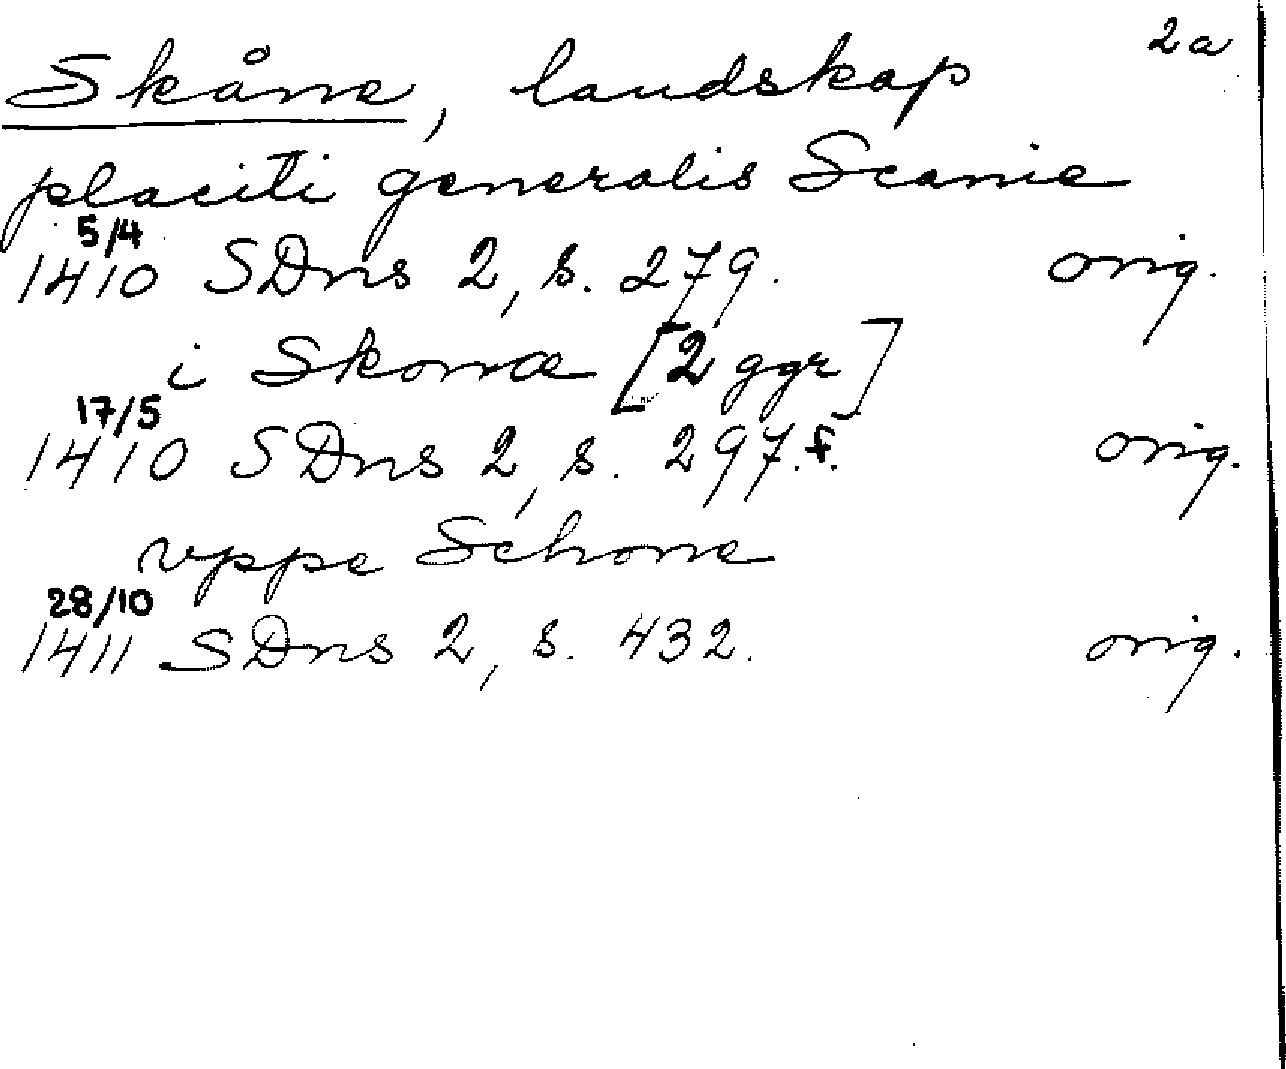 2a
Skåne, landskap
placiti generalis Scanie
5/4
1410 SDns 2, s. 279. orig.
i Skonæ [2 ggr]
17/5
1410 SDns 2, s. 297.f. orig.
vppe Schone
28/10
1411 SDns 2, s. 432. orig.